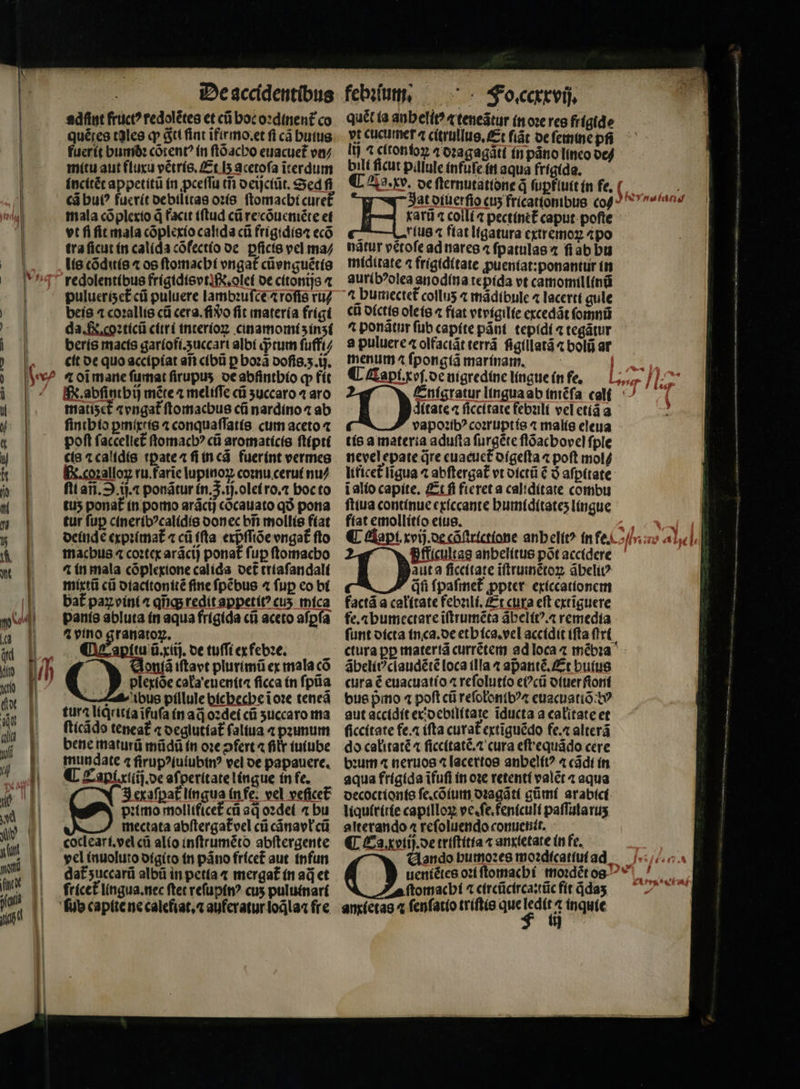 De accidentibus
adſint fruct⁹ redolētes et cū hoc ordinent᷑ co
quētes tales ꝙ q̄ſi ſint īfirmo.et ſi cā huius
fuerit humōꝛ cōtent⁹ in ſtōacho euacuet᷑ vo⸗
mitu aut fluxu vētris. Et lꝫ acetoſa īterdum
incitēt appetitū in ꝓceſſu tn̄ deijciūt. Sed ſi
cā hui⁹ fuerit debilitas oꝛis ſtomachi curet᷑
mala cōplexio q̄ facit iſtud cū re cōueniēte ei
vt ſi ſit mala cōplexio calida cū frigidis⁊ ecō
tra ſicut in calida cōfectio de ꝓficis vel ma⸗
lis cōditis ⁊ os ſtomachi vngat᷑ cū vnguētis
redolentibus frigidis vt ℞. olei de citonijs ⁊
puluerizet᷑ cū puluere lambꝛuſce ⁊ roſis ru⸗
beis ⁊ coꝛallis cū cera. ſi v̄o ſit materia frigi
da. ℞. coꝛticū citri interioꝝ cinamomi ʒinʒi
beris macis gariofi.ʒuccari albi q̄ꝫtum ſuffi⸗
cit de quo accipiat an̄ cibū ꝑ hoꝛā doſis.ʒ.ij.
⁊ oī mane ſumat ſirupuꝫ de abſinthio ꝙ fit
℞. abſinthij mēte ⁊ meliſſe cū ʒuccaro ⁊ aro
matiʒet᷑ ⁊ vngat᷑ ſtomachus cū nardino ⁊ ab
ſinthio ꝑmixtis ⁊ conquaſſatis cum aceto ⁊
poſt ſaccellet᷑ ſtomach⁹ cū aromaticis ſtipti
cis ⁊ calidis tpate ⁊ ſi in cā fuerint vermes
℞. coꝛalloꝝ ru. farie lupinoꝝ coꝛnu cerui nu⸗
ſti an̄. Ʒ.ij.⁊ ponātur in.Ʒ.ij.olei ro.⁊ hoc to
tuꝫ ponat᷑ in pomo arācij cōcauato qꝺ pona
tur ſuꝑ cinerib⁹ calidis donec bn̄ mollis fiat
deinde exprimat᷑ ⁊ cū iſta exp̄ſſiōe vngat᷑ ſto
machus ⁊ coꝛtex arācij ponat᷑ ſuꝑ ſtomacho
⁊ in mala cōplexione calida det᷑ triaſandali
mixtū cū diacitonitē ſine ſpēbus ⁊ ſuꝑ eo bi
bat᷑ paꝝ vini ⁊ qn̄qꝫ redit appetit⁹ cuꝫ mica
panis abluta in aqua frigida cū aceto aſpſa
⁊ vino granatoꝝ.
¶ Capitu ū.xiij. de tuſſi ex febꝛe.
Quia iſta vt plurimū ex mala cō
plexiōe cała euenit⁊ ſicca in ſpūa
libus pillule bichechie ī oꝛe teneā
tur⁊ liq̄ritia īfuſa in aq̄ oꝛdei cū ʒuccaro ma
ſticādo teneat᷑ ⁊ deglutiat᷑ ſaliua ⁊ pꝛunum
bene maturū mūdū in oꝛe ꝓfert ⁊ ſil̓r iuiube
mundate ⁊ ſirup⁹ iuiubin⁹ vel de papauere.
¶ Capi.xiiij.de aſperitate lingue in fe.
Si exaſpat᷑ lingua in fe. vel veſicet᷑
pꝛimo mollificet᷑ cū aq̄ oꝛdei ⁊ hu
mectata abſtergat᷑ vel cū cānay̓l cū
cocleari.vel cū alio inſtrumēto abſtergente
vel inuoluto digito in pāno fricet᷑ aut infun
dat᷑ ʒuccarū albū in petia ⁊ mergat᷑ in aq̄ et
fricet᷑ lingua.nec ſtet reſupin⁹ cuꝫ puluinari
ſub capite ne calefiat.⁊ auferatur loq̄la⁊ fre
febꝛium, Fo.ccxxvij.
quēt ia anhelit⁹ ⁊ teneātur in oꝛe res frigide
vt cucumer ⁊ citrullus. Et fiāt de ſemine pſi
lij ⁊ citonioꝝ ⁊ dꝛagagāti in pāno lineo de⸗
bili ſicut pillule infuſe in aqua frigida.
¶ Ca.xv. de ſternutatione q̄ ſupfluit in fe.
Fiat diuerſio cuꝫ fricationibus coſ⸗
xarū ⁊ colli ⁊ pectinet᷑ caput poſte
rius ⁊ fiat ligatura extremoꝝ ⁊ po
nātur vētoſe ad nares ⁊ ſpatulas ⁊ ſi ab hu
miditate ⁊ frigiditate ꝓueniat:ponantur in
aurib⁹ olea anodina tepida vt camomillinū
⁊ humectet᷑ colluꝫ ⁊ mādibule ⁊ lacerti gule
cū dictis oleis ⁊ fiat vt vigilie excedāt ſomnū
⁊ ponātur ſub capite pāni tepidi ⁊ tegātur
a puluere ⁊ olfaciāt terrā ſigillatā ⁊ bolū ar
menum ⁊ ſpongiā marinam.
¶ Capi.xvſ.de nigredine lingue in fe.
Denigratur lingua ab intēſa cali
ditate ⁊ ſiccitate febꝛili vel etiā a
vapoꝛib⁹ coꝛruptis ⁊ malis eleua
tis a materia aduſta ſurgēte ſtōacho vel ſple
ne vel epate q̄re euacuet᷑ digeſta ⁊ poſt mol⸗
lificet᷑ līgua ⁊ abſtergat᷑ vt dictū ē ꝺ̄ aſpitate
ī alio capite. Et ſi fieret a caliditate combu
ſtiua continue exiccante humiditateꝫ lingue
fiat emollitio eius.
¶ Capi.xvij.de cōſtrictione anhelit⁹ in fe.
Difficultas anhelitus pōt accidere
aut a ſiccitate iſtrumētoꝝ ābelit⁹
q̄ſi ſpaſmet᷑ ꝓpter exiccationem
factā a calitate febꝛili. Et cura eſt extiguere
fe.⁊ humectare iſtrumēta ābelit⁹.⁊ remedia
ſunt dicta in.ca.de ethica.vel accidit iſta ſtri
ctura ꝓp materiā currētem ad loca ⁊ mēbꝛa
ābelit⁹ claudētē loca illa ⁊ aꝑantē. Et huius
cura ē euacuatio ⁊ reſolutio ei⁹ cū diuerſioni
bus p̄mo ⁊ poſt cū reſolonib⁹⁊ euacuatiōib⁹
aut accidit ex debilitate īducta a calitate et
ſiccitate fe.⁊ iſta curat᷑ extiguēdo fe.⁊ alterā
do calitatē ⁊ ſiccitatē.⁊ cura eſt equādo cere
bꝛum ⁊ neruos ⁊ lacertos anhelit⁹ ⁊ cādi in
aqua frigida īfuſi in oꝛe retenti valēt ⁊ aqua
decoctionis ſe.cōium dꝛagāti gūmi arabici
liquiritie capilloꝝ ve.ſe.feniculi paſſularuꝫ
alterando ⁊ reſoluendo conuenit.
¶ Ca.xviij.de triſtitia ⁊ anxietate in fe.
Quando humoꝛes moꝛdicatiui ad
ueniētes oꝛi ſtomachi moꝛdēt os
ſtomachi ⁊ circūcirca:tūc fit q̄daꝫ
anxietas ⁊ ſenſatio triſtis que ledit ⁊ inquie
F iij